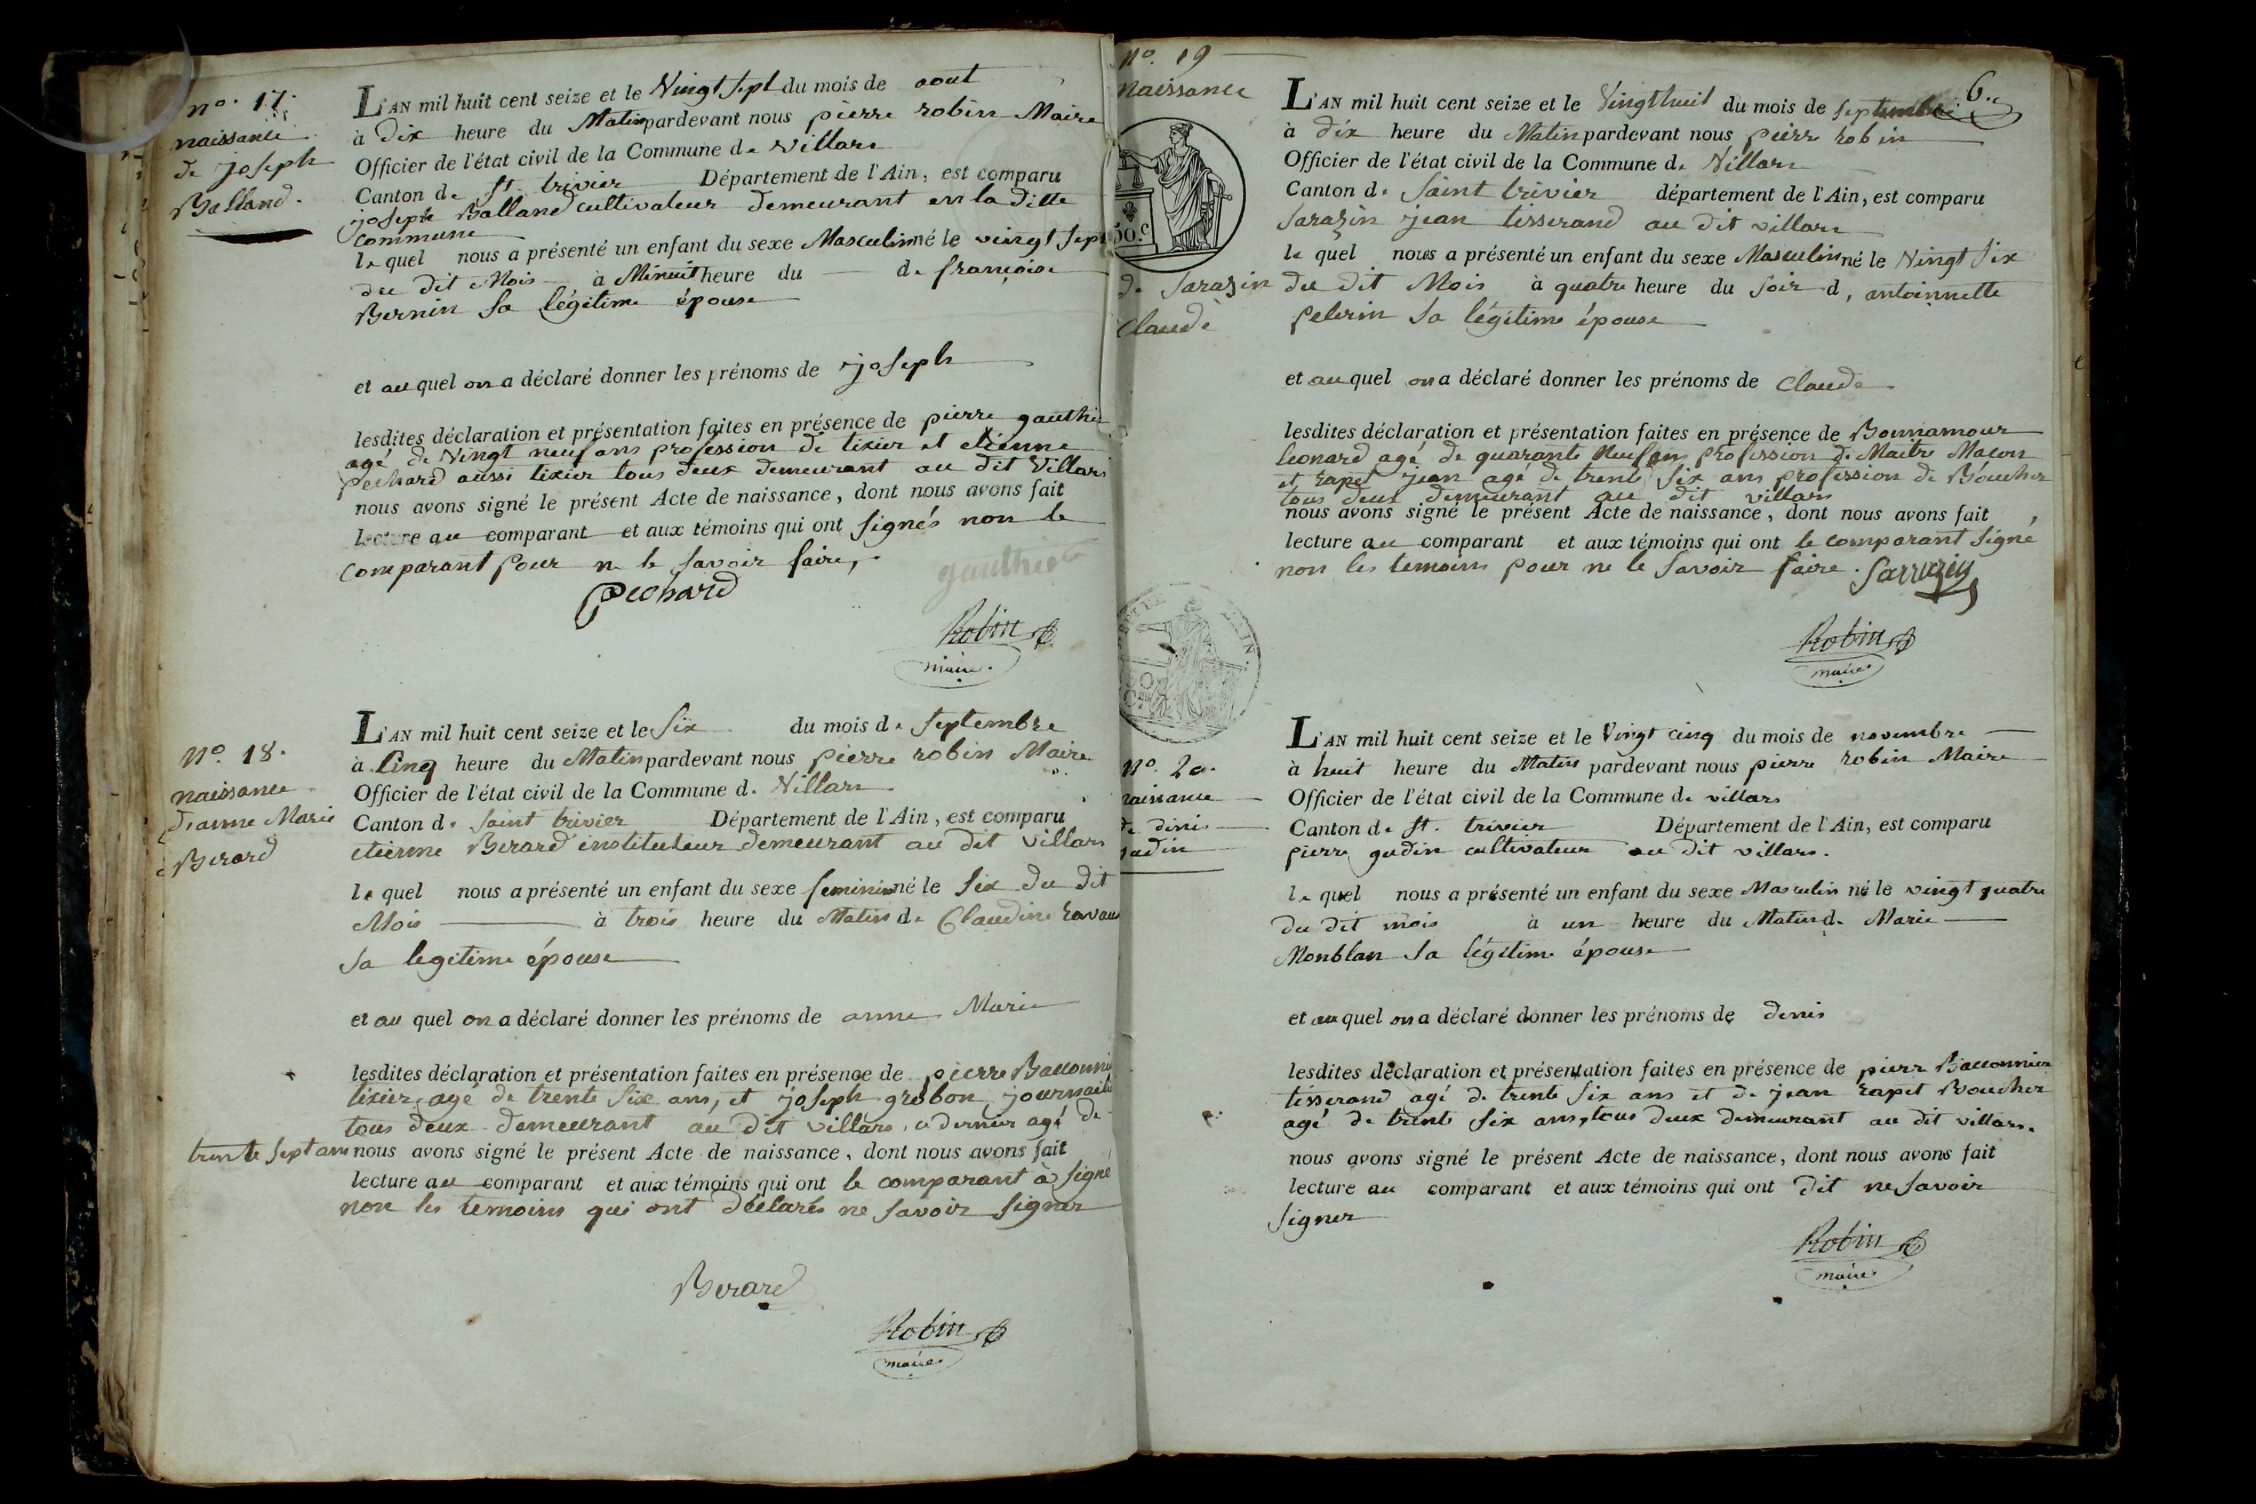 n.o 17.
naissance
de joseph
Balland.
L'AN mil huit cent seize et le Vingt sept du mois de aout
à dix heure du Matin pardevant nous pierre robin Maire
Officier de l'état civil de la Commune de Villars
Canton de st. trivier Département de l'Ain, est comparu
joseph Balland cultivateur demeurant en la ditte
commune
le quel nous a présenté un enfant du sexe Masculin né le vingt sept
du dit Mois à Minuit heure du de françoise
Bernin sa légitime épouse
et au quel on a déclaré donner les prénoms de joseph
lesdites déclaration et présentation faites en présence de pierre gauthier
agé de Vingt neuf ans profession de tixier et etienne
pechard aussi tixier tous deux demeurant au dit Villars
nous avons signé le présent Acte de naissance, dont nous avons fait
lecture au comparant et aux témoins qui ont signés non le
comparant pour ne le savoir faire,
gauthier
pechard
Robin
maire.
N.o 18.
naissance
d'anne Marie
Berard
L'AN mil huit cent seize et le Six du mois de Septembre
à Cinq heure du Matin pardevant nous pierre robin Maire
Officier de l'état civil de la Commune d. Villars
Canton de Saint trivier Département de l'Ain, est comparu
etienne Berard instituteur demeurant au dit Villars
le quel nous a présenté un enfant du sexe feminin né le Six du dit
Mois à trois heure du Matin de Claudine ravau
sa legitime épouse
et au quel on a déclaré donner les prénoms de anne Marie
lesdites déclaration et présentation faites en présence de pierre Baconni
tixier agé de trente Six ans, et joseph grobon journali
tous deux demeurant au dit villars, ce dernier agé de
trente sept ans nous avons signé le présent Acte de naissance, dont nous avons fait
lecture au comparant et aux témoins qui ont le comparant à signé
non les temoins qui ont déclarés ne savoir signer
Berard
Robin
maire.
N.o 19
naissance
50.c
de Sarazin
Claude
6.e
L'AN mil huit cent seize et le Vingt huit du mois de septembre
à dix heure du Matin pardevant nous pierr robin
Officier de l'état civil de la Commune d. Villars
Canton d. Saint trivier département de l'Ain, est comparu
Sarazin jean tisserand au dit villars
le quel nous a présenté un enfant du sexe Masculin né le Vingt Six
du dit Mois à quatre heure du Soir d, antoinnette
pelerin sa légitime épouse
et au quel on a déclaré donner les prénoms de Claude.
lesdites déclaration et présentation faites en présence de Bonnamour
leonard agé de quarante Neuf ans profession de Maitre Macon
et rapet jean agé de trente Six ans profession de Boucher
tous deux demeurant au dit villars
nous avons signé le présent Acte de naissance, dont nous avons fait
lecture au comparant et aux témoins qui ont le comparant signé
non les temoins pour ne le savoir faire. Sarrazin
Robin
maire
N.o 20.
naissance
de dinis
gudin
L'AN mil huit cent seize et le Vingt cinq du mois de novembre
à huit heure du Matin pardevant nous pierre robin Maire
Officier de l'état civil de la Commune de villars
Canton de st. trivier Département de l'Ain, est comparu
pierre gudin cultivateur au dit villars.
le quel nous a présenté un enfant du sexe Masculin né le vingt quatre
du dit mois à un heure du Matin d. Marie
Monblan sa légitime épouse
et au quel on a déclaré donner les prénoms de denis
lesdites déclaration et présentation faites en présence de pierr Baconnier
tisserand agé de trente Six ans et de jean rapet Boucher
agé de trente six ans, tous deux demeurant au dit villars.
nous avons signé le présent Acte de naissance, dont nous avons fait
lecture au comparant et aux témoins qui ont dit ne savoir
signer
Robin
maire